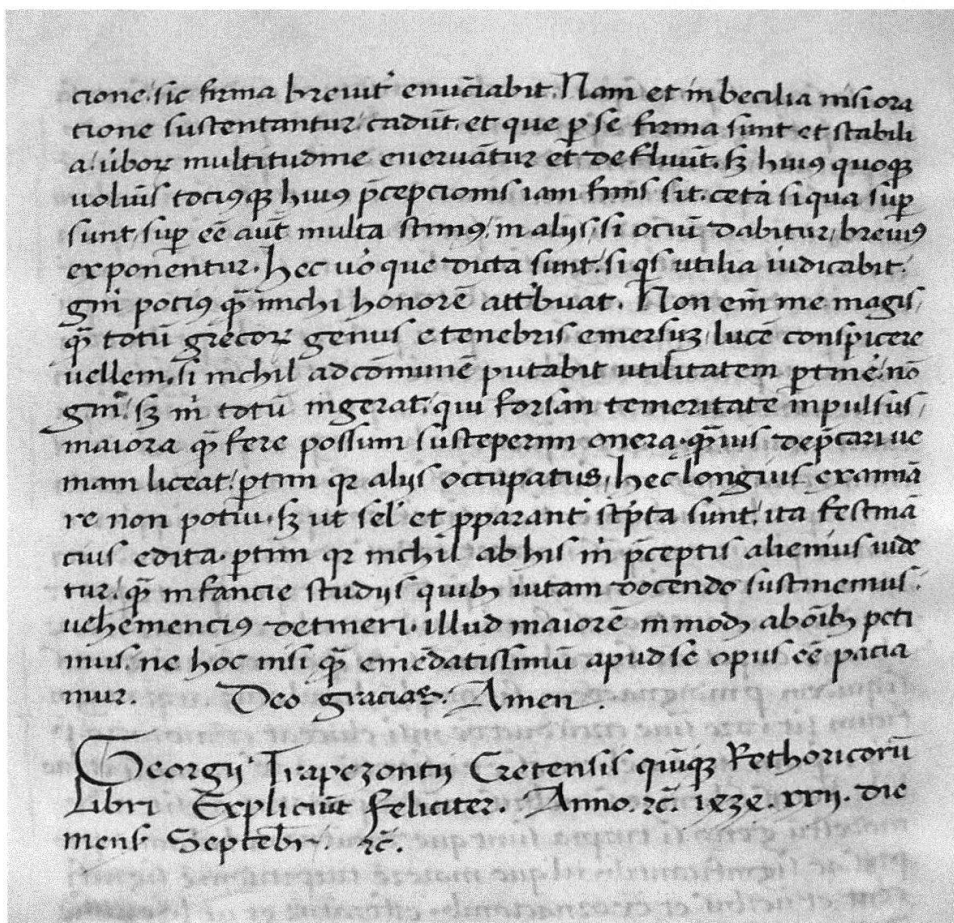 cione, sic firma breuit᷑ enūciabit. Nam et inbecilia nisi ora
tione sustentantur, cadūt, et que ꝑ se firma sunt et stabili
a, ũboꝝ multitudine eneruãtur et defluũt. sꝫ huiꝰ quoqꝫ
uolũis tociꝰqꝫ huiꝰ p̃cepcionis iam finis sit. cet̃a si qua suꝑ
sunt, suꝑ eẽ aut̃ multa scimꝰ, in alijs, si ociũ dabitur, breuiꝰ
exponentur. Hec uo᷑ que dicta sunt, si qͥs utilia iudicabit,
gm̃i pociꝰ qͣ̃ michi honorẽ att͛buat. Non em̃ me magis,
qͣ̃ totũ grecoꝝ genus e tenebris emersuꝫ, lucẽ conspicere
uellem, si nichil ad cõmunẽ putabit utilitatem ꝑtine᷑, nõ
gm̃i, sꝫ m̃ totũ ingerat, qui forsãn temeritate inpulsus,
maiora qͣ̃ fere possim susceperim onera, qͣ̃uis dep̃cari ue
niam liceat, ꝑtim qꝛ alijs occupatus, hec longius examiã
re non potui, sꝫ ut sel᷑ et ꝑparant᷑ sc̃pta sunt, ita festinã
cius edita, ꝑtim qꝛ nichil ab his m̃ p̃ceptis alienius uide
tur, qͣ̃ infancie studijs quibꝫ uitam docendo sustinemus,
uehemenciꝰ detineri, illud maiorẽ in modꝫ ab oĩbꝫ peti
mus, ne hoc nisi qͣ̃ emẽdatissimũ apud se opus eẽ pacia
mur. Deo gracias. Amen.
Georgij Trapezontij Cretensis quĩqꝫ Rethoricorũ
Libri Expliciũt feliciter. Anno. ⁊c̃. 1^3. xxij. die
mens̃ Septebr̃. ⁊c̃.